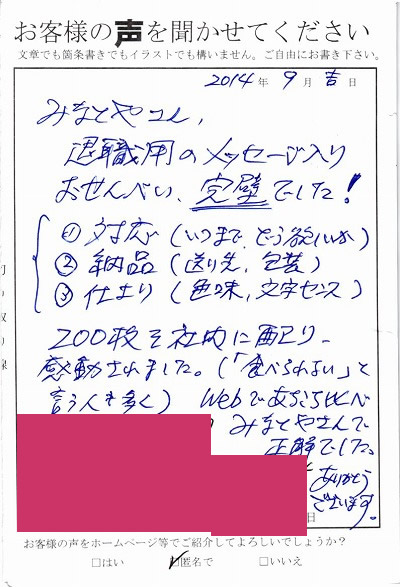 お客様の声を聞かせてください
文章でも箇条書きでもイラストでも構いません。ご自由にお書き下さい。
2014年 9月 吉日
みなとやさん、
退職用のメッセージ入り
おせんべい、完璧でした!
① 対応(いつまで、どう欲しいか)
② 納品(送り先、包装)
③ 仕上り(色味、文字センス)
200枚を社内に配り、
感動されました。(「食べられない」と
言う人も多く) Webであちこち比べ
みなとやさんで
正解でした。
ありがとう
ございます。
日
お客様の声をホームページ等でご紹介してよろしいでしょうか?
□はい □匿名で □いいえ